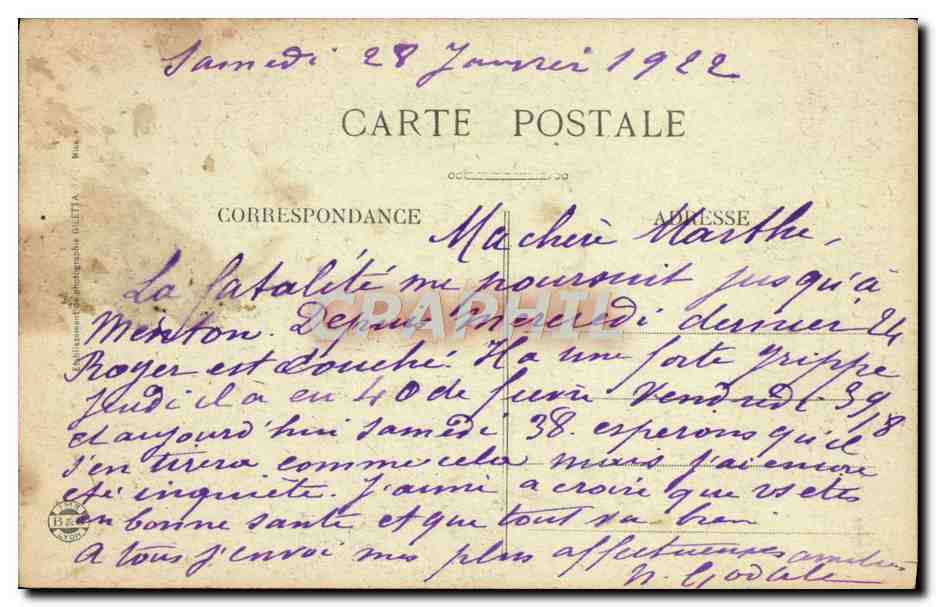 Samedi 28 Janvier 1922
CARTE POSTALE
CORRESPONDANCE
ADRESSE
Ma chère Marthe,
La fatalité me poursuit jusqu'à
Menton. Depuis mercredi dernier 24
Roger est couché. Il a une forte grippe
Jeudi il a eu 40 de fièvre Vendredi 39/8
et aujourd'hui samedi 38. esperons qu'il
s'en tirera comme cela mais j'ai encore
été inquiète. J'aime a croire que vs etes
en bonne santé et que tout va bien
A tous j'envoi mes plus affectueuses amitiés
Etablissement de photographie GILETTA
CRAPHIL
B LYON